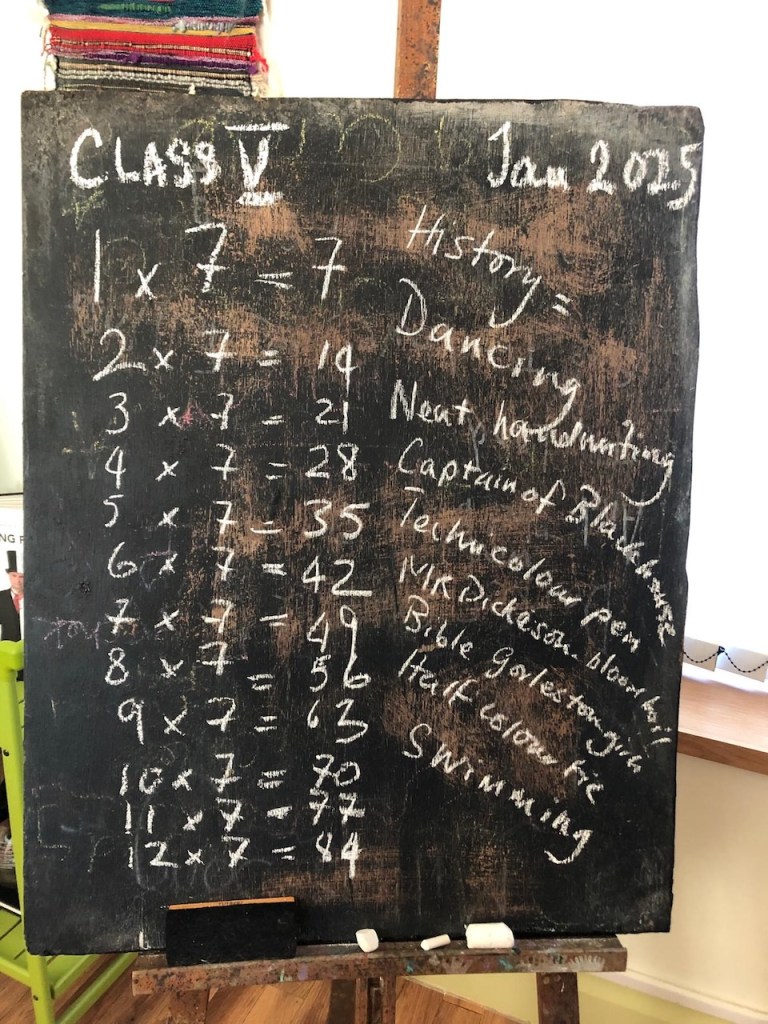 CLASS V
Jan 2025
1 x 7 = 7
2 x 7 = 14
3 x 7 = 21
4 x 7 = 28
5 x 7 = 35
6 x 7 = 42
7 x 7 = 49
8 x 7 = 56
9 x 7 = 63
10 x 7 = 70
11 x 7 = 77
12 x 7 = 84
History =
Dancing
Neat, handwriting
Captain of Blackhouse
Technicolour pen
MR Dickeson
Bible Gorleston
Half colour tie
Swimming